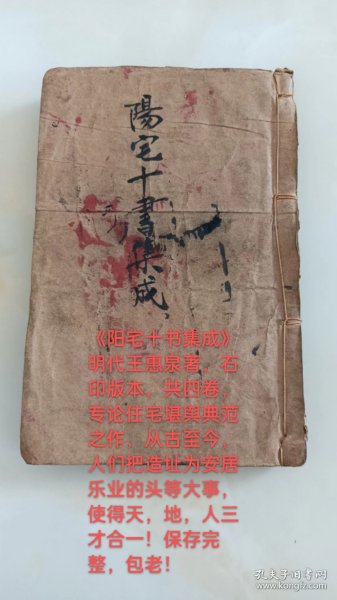 陽宅十書集成
《阳宅十书集成》
明代王惠泉著，石
印版本，共四卷，
专论住宅堪舆典范
之作、从古至今，
人们把造址为安居
乐业的头等大事，
使得天，地，人三
才合一！保存完
整，包老！
孔夫子旧书网